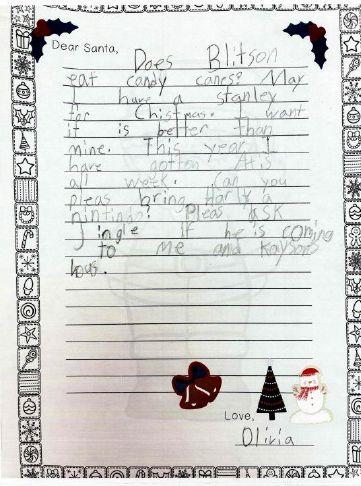 Dear Santa,
Does Blitson
eat candy canes? May
I have a stanley
for Chistmas. I want
it is better than
mine. This year I
have gotton At is
all week. Can you
pleas bring Harly a
nintindo? Pleas ask
Jingle if he is coming
to me and Kaysons
hous.
Love,
Olivia